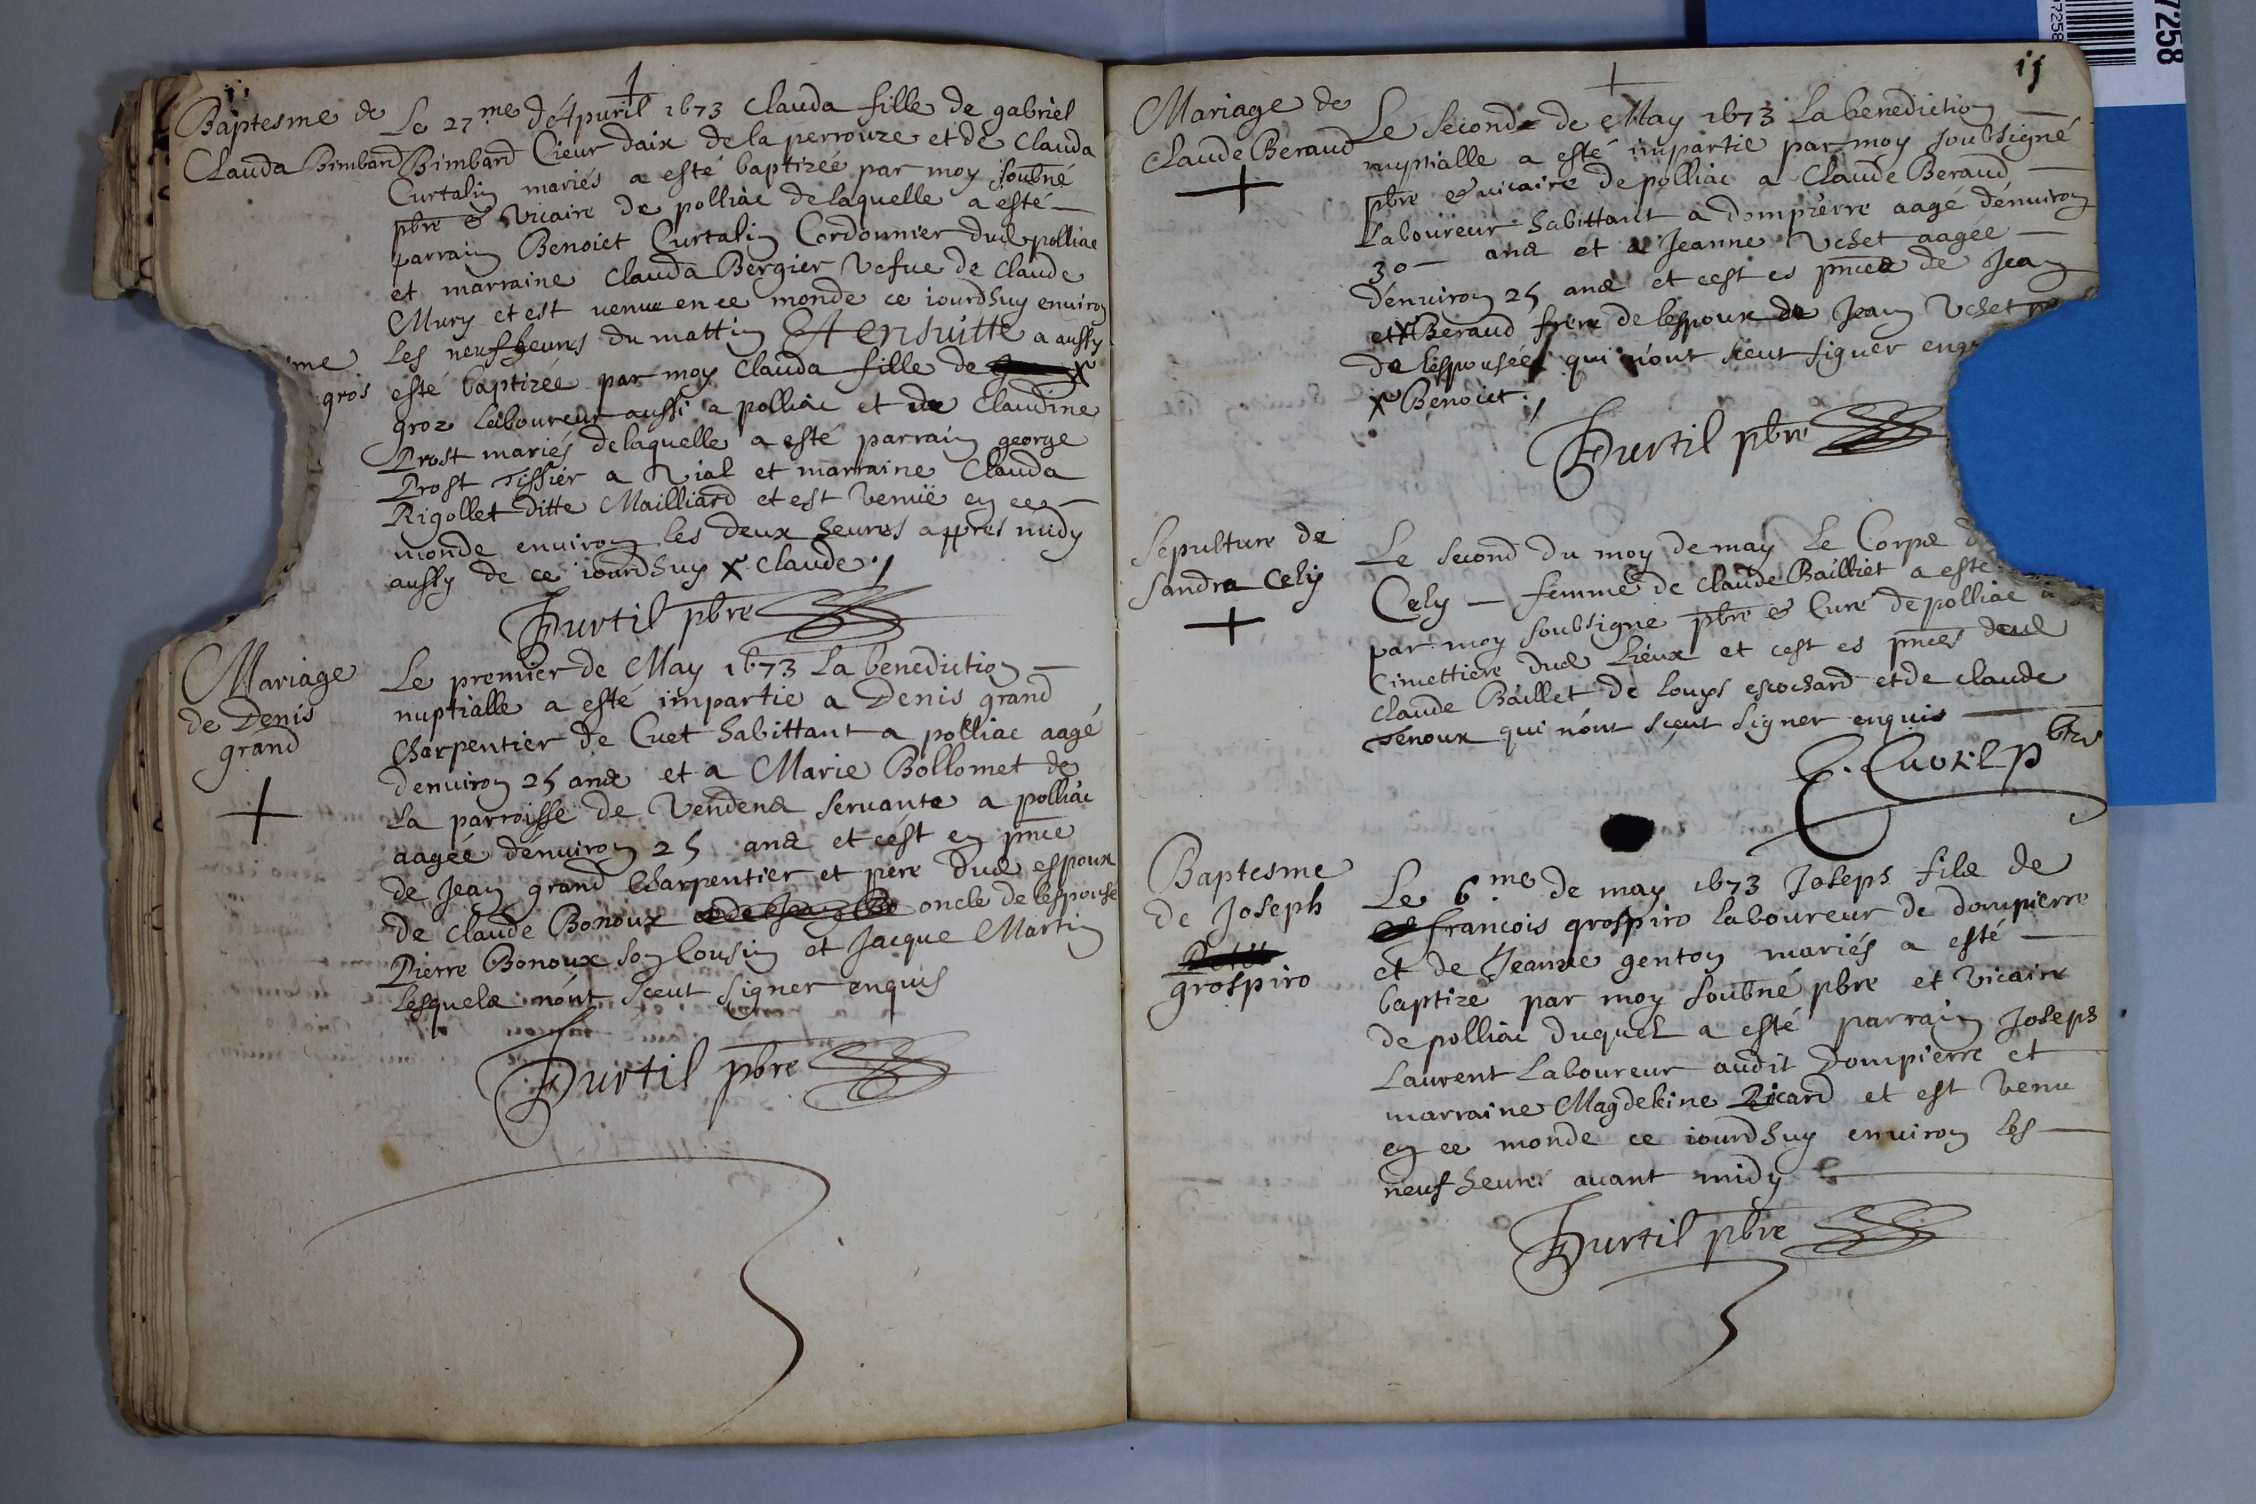 Baptesme de
Clauda Bimbard
Le 27.me d'Apuril 1673 Clauda fille de gabriel
Bimbard Cieur daix de la perrouze et de Clauda
Curtalin mariés a esté baptizée par moy soubné
pbre & Vicaire de polliac delaquelle a esté
parrain Benoict Curtalin Cordonnier dud polliac
et marraine Clauda Bergier Vefue de Claude
Mury et est venue en ce monde ce iourdhuy environ
les neuf heures du mattin Et ensuitte a aussy
me
gros
esté baptizée par moy Clauda fille de x
groz laboureur aussi a polliac et de Claudine
Prost mariés delaquelle a esté parrain george
Prost Tissier a Vial et marraine Clauda
Rigollet ditte Mailliard et est venuë en ce
monde environ les deux heures appres midy
aussy de ce iourdhuy x Claude
Burtil pbre
Mariage
de Denis
grand
Le premier de May 1673 La benediction
nuptialle a esté impartie a Denis grand
Charpentier de Cuet habittant a polliac aagé
denuiron 25 ans et a Marie Bollomet de
la parroisse de Vendens seruante a polliac
aagée dénuiron 25 ans et cést en pnce
de Jean grand Charpentier et pere dud espoux
de Claude Bonoux oncle de lespouse
Pierre Bonoux son Cousin et Jacque Martin
Lesquels nónt sceut signer enquis
Burtil pbre
15
Mariage de
Claude Beraud
Le second de May 1673 La benediction
nuptialle a esté impartie par moy soubsigné
pbre & vicaire de polliac a Claude Beraud
Laboureur habittant a dompierre aagé dénuiron
30 ans et a Jeanne Vchet aagée
dénuiron 25 ans et cest es pnces de Jean
et x Beraud frere de lespoux de Jean Vchet
de lespousée qui nónt sceut signer
x Benoict
Burtil pbre
Sepulture de
Sandra Cely
Le second du moy de may Le Corps
Cely femme de Claude Bailliet a esté
par moy soubsigne pbre & Curé de polliac
Cimettiere dud Lieux et cest es pnces dud
Claude Baillet de Louys escochard et de Claude
Tenoux qui nónt sceut signer enquis
C. Curtil pbre
Baptesme
de Joseph
grospiro
Le 6.me de may 1673 Joseph fils de
francois grospiro laboureur de dompierre
et de Jeanne genton mariés a esté
baptize par moy soubné pbre et vicaire
de polliac duquel a esté parrain Joseph
Laurent Laboureur audit Dompierre et
marraine Magdeleine Ricard et est venu
en ce monde ce iourdhuy environ les
neuf heures auant midy
Burtil pbre
7258